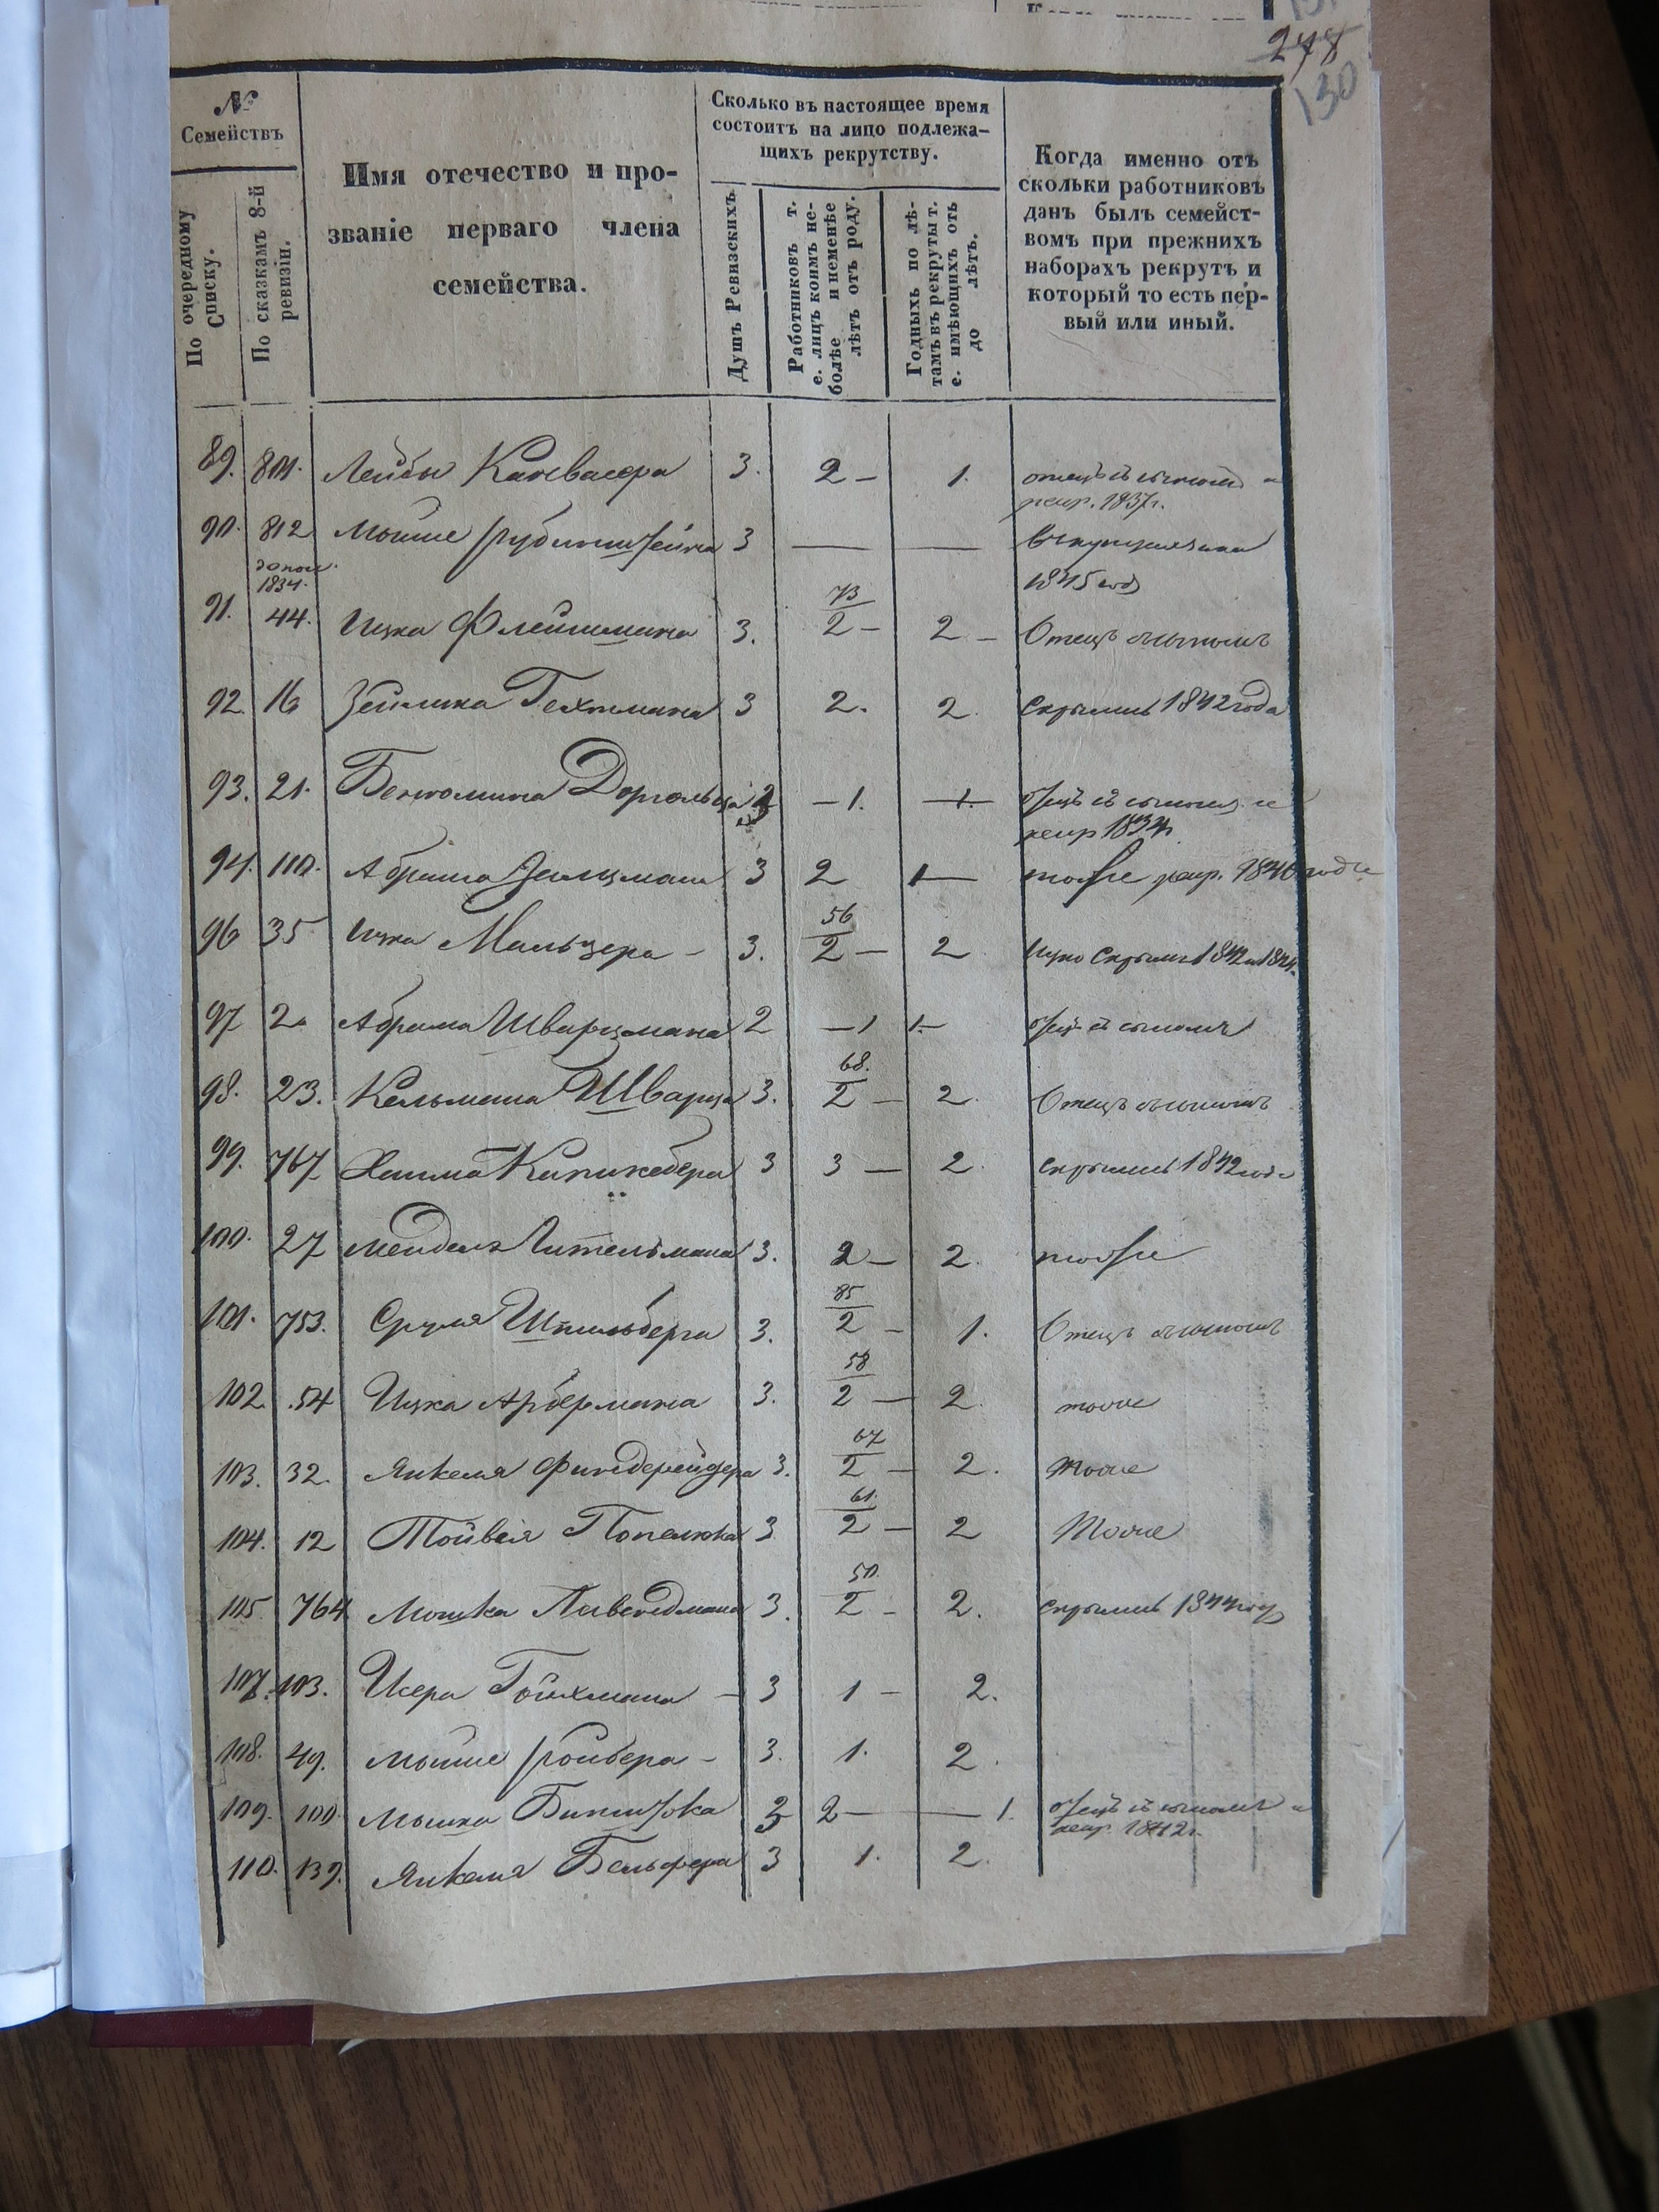 278
130
№
Семействъ
По очередному Списку.
По сказкамъ 8-й ревизіи.
Имя отечество и про-
званіе перваго члена
семейства.
Сколько въ настоящее время
состоитъ на лицо подлежа-
щихъ рекрутству.
Душъ Ревизскихъ
Работниковъ т.
е. лицъ коимъ не-
болѣе и неменѣе
лѣтъ отъ роду.
Годныхъ по лѣ-
тамъ въ рекруты т.
е. имѣющихъ отъ
до лѣтъ.
Когда именно отъ
скольки работниковъ
данъ былъ семейст-
вомъ при прежнихъ
наборахъ рекрутъ и
который то есть пер-
вый или иный.
89. 801. Лейбы 3. 2 – 1. отецъ съ сыномъ и
рекр. 1837г.
90. 812 Мошие Рубинштейна 3 — —
1845 год
допол.
1834.
91. 44. Ицка Флейшмана 3. 73/2 – 2 – Отецъ съ сыномъ
92. 16 Зейлика Гехтмана 3 2. 2. скрылись 1842 года
93. 21. Бенюмина 3 – 1. – 1. отецъ съ сыномъ и
рекр 1834г.
94. 110. Абрама Зальцмана 3 2 1 — тоже рекр. 1840 года
96 35 Ицка Мальцера – 3. 56/2 – 2 Ицко скрылись 1842 и 1844.
97 2. Абрама Шварцмана 2 – 1 1. – отецъ съ сыномъ
98. 23. Кельмана Шварца 3. 68./2 – 2. Отецъ съ сыномъ
99. 767 Хаима 3 3 – 2. скрылись 1842 года
100. 27 Менделя Гительмана 3. 2 – 2. тоже
101. 753. Сруля Шпильберга 3. 85/2 – 1. Отецъ съ сыномъ
102. 54 Ицка Арбермана 3. 58/2 – 2. тоже
103. 32. Янкеля 3. 67/2 – 2. тоже
104. 12 Тойвія Попелюха 3 61./2 – 2 Тоже
105. 764 Мошка 3. 50./2 – 2. скрылись 1844 году
107. 103. Исера Гойхмана – 3 1 – 2.
108. 49. Мошие Ройбера – 3. 1. 2.
109. 100. Мошка 3 2 — — 1. отецъ съ сыномъ и
рекр. 1842г.
110. 139. Янкеля Бельфера 3 1. 2.